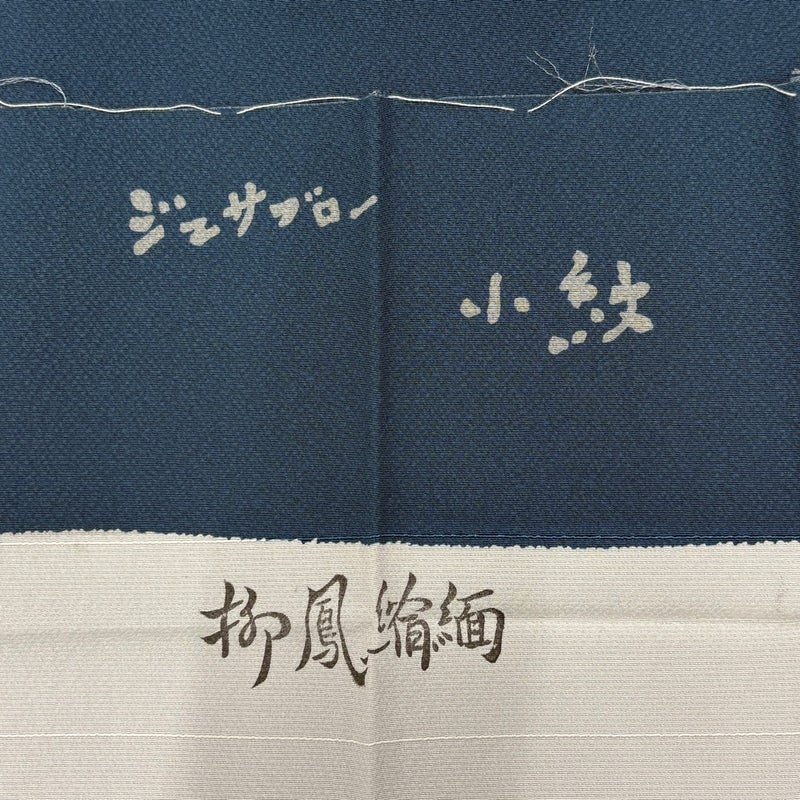 ジュサブロー
小紋
柳鳳縮緬